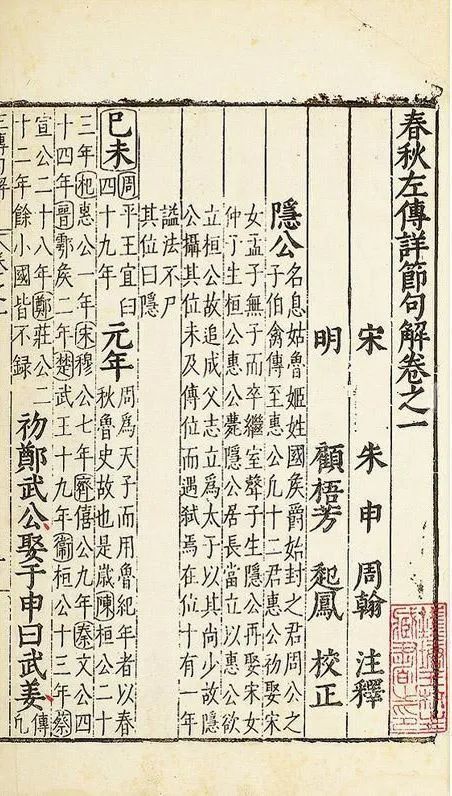 春秋左傳詳節句解卷之一
宋 朱申 周翰 注釋
明 顧梧芳 起鳳 校正
隱公
名息姑魯姬姓國矦爵始封之君周公之
子伯禽傳至惠公凡十二君惠公初娶宋
女孟子無子而卒繼室聲子生隱公再娶宋女
仲子生桓公惠公薨隱公居長當立以惠公欲
立桓公故追成父志立爲太子以其尚少故隱
公攝其位未及傳位而遇弒焉在位十有一年
謚法不尸
其位曰隱
己未
周平王宜臼
四十九年
元年
周爲天子而用魯紀年者以春
秋魯史故也是歲陳桓公二十
三年杞惠公一年宋穆公七年齊僖公九年秦文公四
十四年晉鄂矦二年楚武王十九年衛桓公十三年蔡
宣公二十八年鄭莊公二
十二年餘小國皆不録
初鄭武公娶于申曰武姜
傳
凡